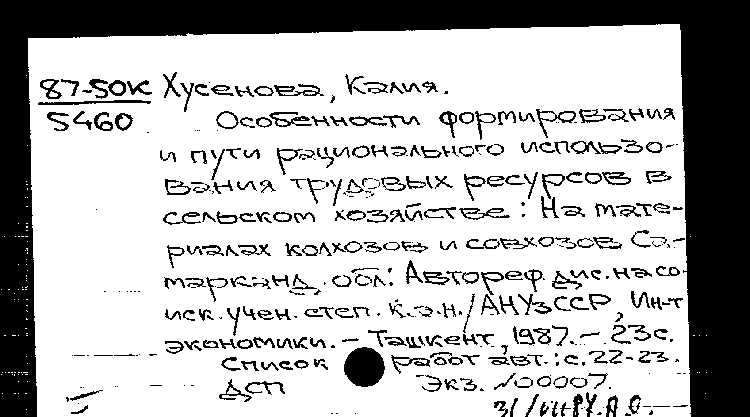 87-50К Хусенова, Калия.
5460 Особенности формирования
и пути рационального использо-
вания трудовых ресурсов в
сельском хозяйстве: На мате-
риалах колхозов и совхозов Са-
марканд. обл: Автореф. дис. на со-
иск. учен. степ. к.э.н. / АН УзССР, Ин-т
экономики. – Ташкент, 1987. – 23 с.
Список работ авт.: с. 22-23.
ДСП Экз. №00007.